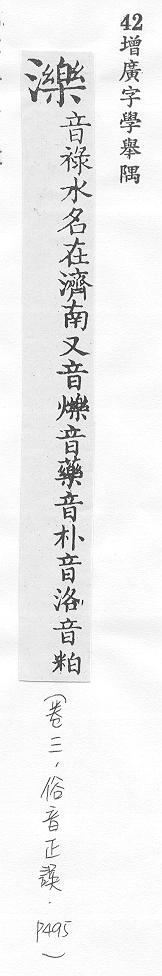 42增廣字學舉隅
濼 音祿水名在濟南又音爍音藥音朴音洛音粕
（卷三，俗音正誤．P495）